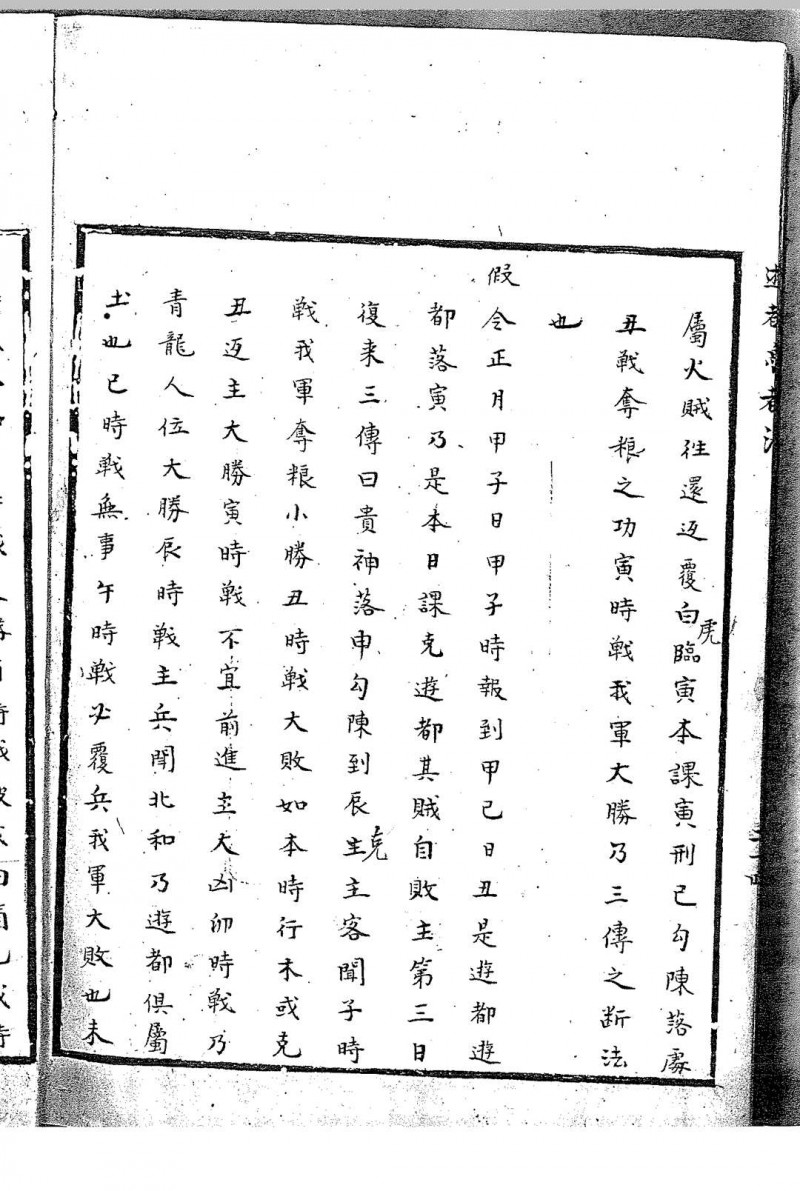 屬火賊往還返覆白虎臨寅本課寅刑已勾陳落處
丑戰奪粮之功寅時戰我軍大勝乃三傳之断法
也
假令正月甲子日甲子時報到甲己日丑是遊都遊
都落寅乃是本日課克遊都其賊自敗主第三日
復来三傳曰貴神落申勾陳到辰主克主客聞子時
戦我軍奪粮小勝丑時戦大敗如本時行木或克
丑返主大勝寅時戦不宜前進主大凶卯時戦乃
青龍人位大勝辰時戦主兵閗北和乃遊都俱屬
土也巳時戦無事午時戦必覆兵我軍大敗也未